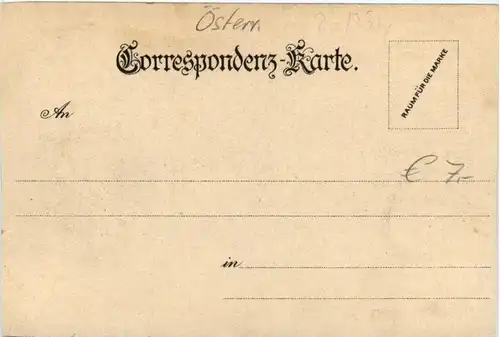 Östern
Correspondenz-Karte.
RAUM FÜR DIE MARKE
An
€ 7,-
in